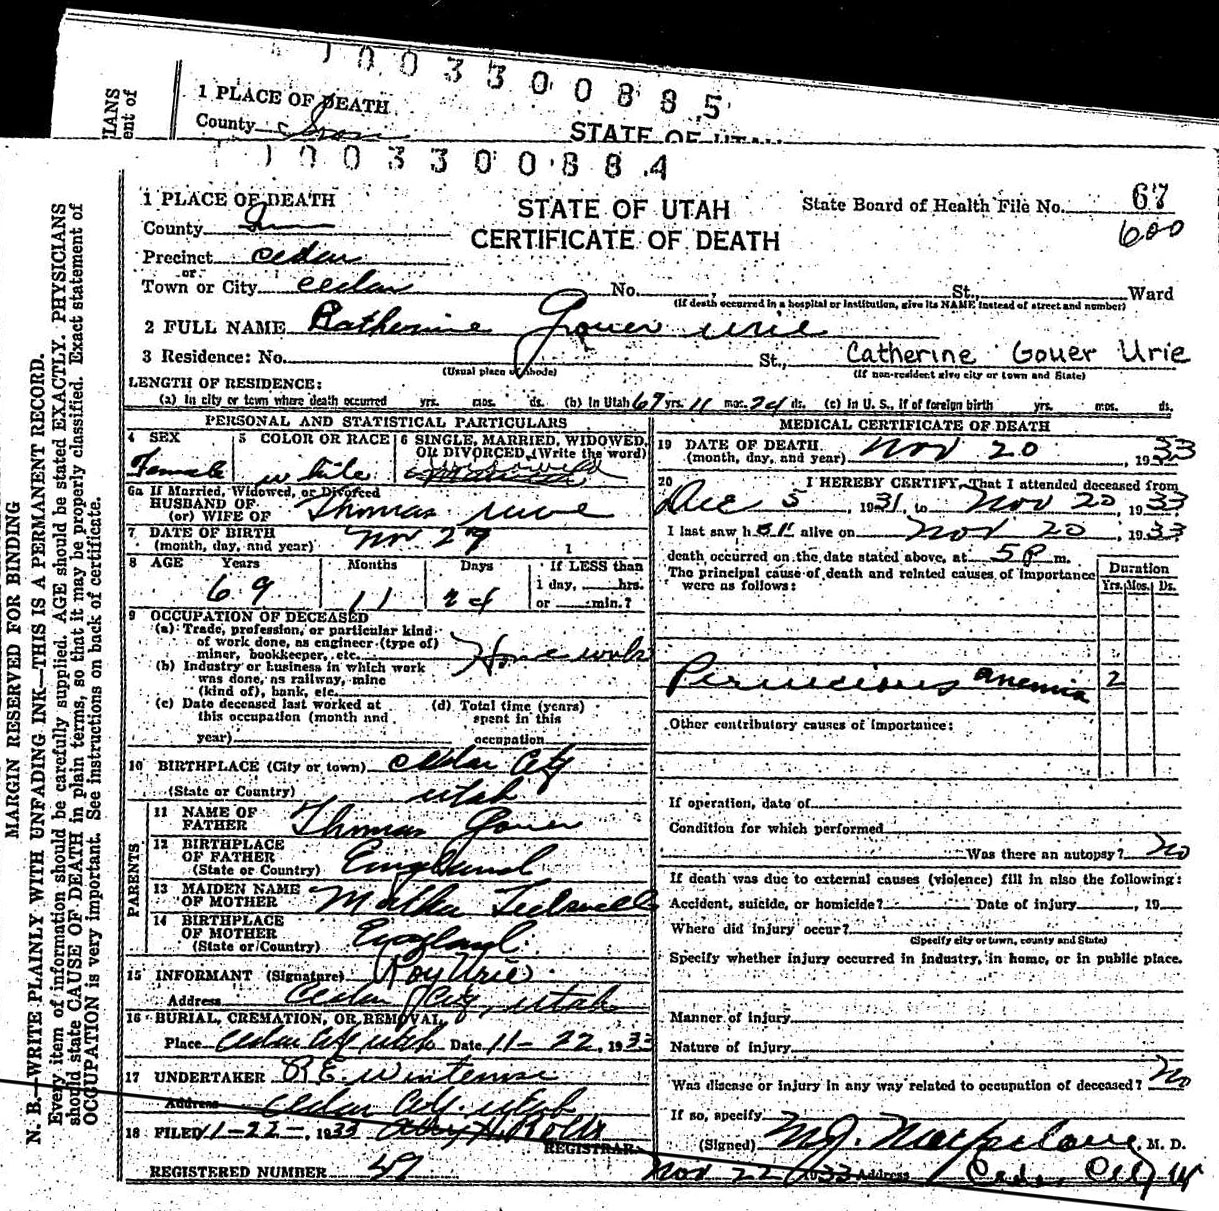 1003300885
1 PLACE OF DEATH
County Iron
STATE OF UTAH
1003300884
1 PLACE OF DEATH
STATE OF UTAH
State Board of Health File No. 67
600
County Iron
CERTIFICATE OF DEATH
Precinct Cedar
or
Town or City Cedar No. St., Ward
(If death occurred in a hospital or institution, give its NAME instead of street and number)
2 FULL NAME Katherine Gower Urie
3 Residence: No. St., Catherine Gouer Urie
(Usual place of abode) (If non-resident give city or town and State)
LENGTH OF RESIDENCE:
(a) In city or town where death occurred yrs. mos. ds. (b) In Utah 67 yrs. 11 mos. 24 ds. (c) In U. S., if of foreign birth yrs. mos. ds.
PERSONAL AND STATISTICAL PARTICULARS
4 SEX 5 COLOR OR RACE 6 SINGLE, MARRIED, WIDOWED, OR DIVORCED, (Write the word)
Female white
6a If Married, Widowed, or Divorced
HUSBAND OF
(or) WIFE OF Thomas Urie
7 DATE OF BIRTH
(month, day, and year) Nov 29 1
8 AGE Years Months Days If LESS than
1 day, hrs.
or min.?
69 11 24
9 OCCUPATION OF DECEASED
(a) Trade, profession, or particular kind
of work done, as engineer (type of)
miner, bookkeeper, etc. House work
(b) Industry or business in which work
was done, as railway, mine
(kind of), bank, etc.
(c) Date deceased last worked at
this occupation (month and
year)
(d) Total time (years)
spent in this
occupation
10 BIRTHPLACE (City or town) Cedar City
(State or Country) Utah
PARENTS
11 NAME OF
FATHER Thomas Gower
12 BIRTHPLACE
OF FATHER
(State or Country) England
13 MAIDEN NAME
OF MOTHER Martha
14 BIRTHPLACE
OF MOTHER
(State or Country) England
15 INFORMANT (Signature) Roy Urie
Address Cedar City, Utah
16 BURIAL, CREMATION, OR REMOVAL
Place Cedar City Utah Date 11-22, 1933
17 UNDERTAKER
Address Cedar City Utah
18 FILED 11-22-, 1933
REGISTRAR
REGISTERED NUMBER 47
MEDICAL CERTIFICATE OF DEATH
19 DATE OF DEATH
(month, day, and year) Nov 20, 1933
20 I HEREBY CERTIFY, That I attended deceased from
Dec 5, 1931, to Nov 20, 1933
I last saw her alive on Nov 20, 1933
death occurred on the date stated above, at 5 P m.
The principal cause of death and related causes of importance
were as follows:
Duration
Yrs. Mos. Ds.
Pernicious anemia 2
Other contributory causes of importance:
If operation, date of
Condition for which performed
Was there an autopsy? No
If death was due to external causes (violence) fill in also the following:
Accident, suicide, or homicide? Date of injury , 19
Where did injury occur?
(Specify city or town, county and State)
Specify whether injury occurred in industry, in home, or in public place.
Manner of injury
Nature of injury
Was disease or injury in any way related to occupation of deceased? No
If so, specify
(Signed) M. J. Macfarlane, M. D.
Nov 22 1933 Address Cedar City U
MARGIN RESERVED FOR BINDING
N. B.—WRITE PLAINLY WITH UNFADING INK—THIS IS A PERMANENT RECORD.
Every item of information should be carefully supplied. AGE should be stated EXACTLY. PHYSICIANS
should state CAUSE OF DEATH in plain terms, so that it may be properly classified. Exact statement of
OCCUPATION is very important. See instructions on back of certificate.
IANS
ent of